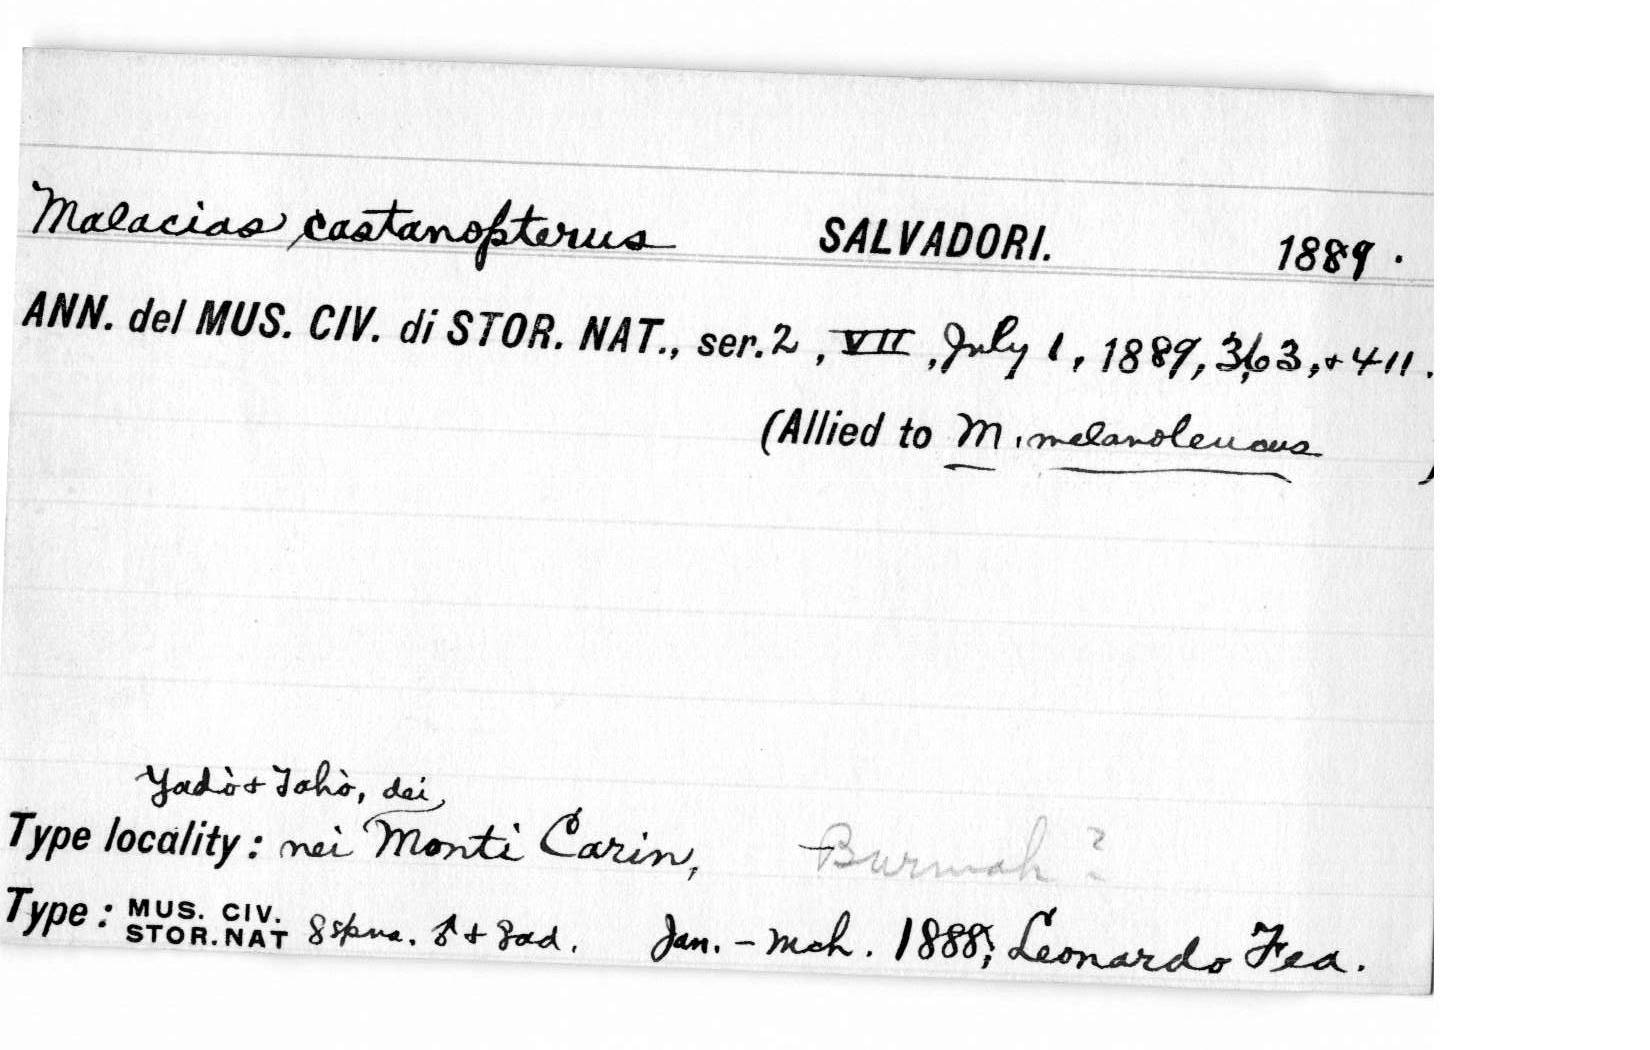 Malacias castanopterus SALVADORI. 1889.
ANN. del MUS. CIV. di STOR. NAT., ser. 2, VII, July 1, 1889, 363, + 411.
(Allied to M. melanoleucus )
Yadò + Tahò, dei
Type locality: nei Monti Carin, Burmah?
Type: MUS. CIV. STOR. NAT 8 spns. ♂ + ♀ ad. Jan. - Mch. 1888; Leonardo Fea.